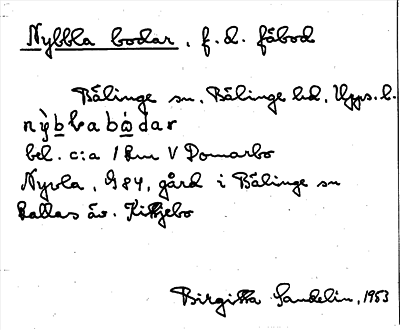 Nybbla bodar, f. d. fäbod
Bälinge sn, Bälinge hd, Upps. l.
nỳbbabòdar
bel. c:a 1 km V Domarbo
Nyvla, G 84, gård i Bälinge sn
kallas äv. Kittjebo
Birgitta Sandelin, 1953